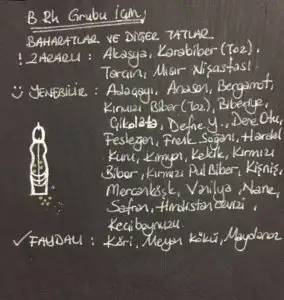 B Rh Grubu İçin;
BAHARATLAR VE DİĞER TATLAR
! ZARARLI : Akasya, Karabiber (Toz),
Tarçın, Mısır Nişastası
YENEBİLİR : Adaçayı, Anason, Bergamot,
Kırmızı Biber (Toz), Biberiye,
Çikolata, Defne Y., Dere Otu,
Fesleğen, Frenk Soğanı, Hardal
Kuru, Kimyon, Kekik, Kırmızı
Biber, Kırmızı Pul Biber, Kişniş,
Mercanköşk, Vanilya, Nane,
Safran, Hindistan cevizi,
Keçiboynuzu.
✓ FAYDALI : Köri, Meyan Kökü, Maydanoz